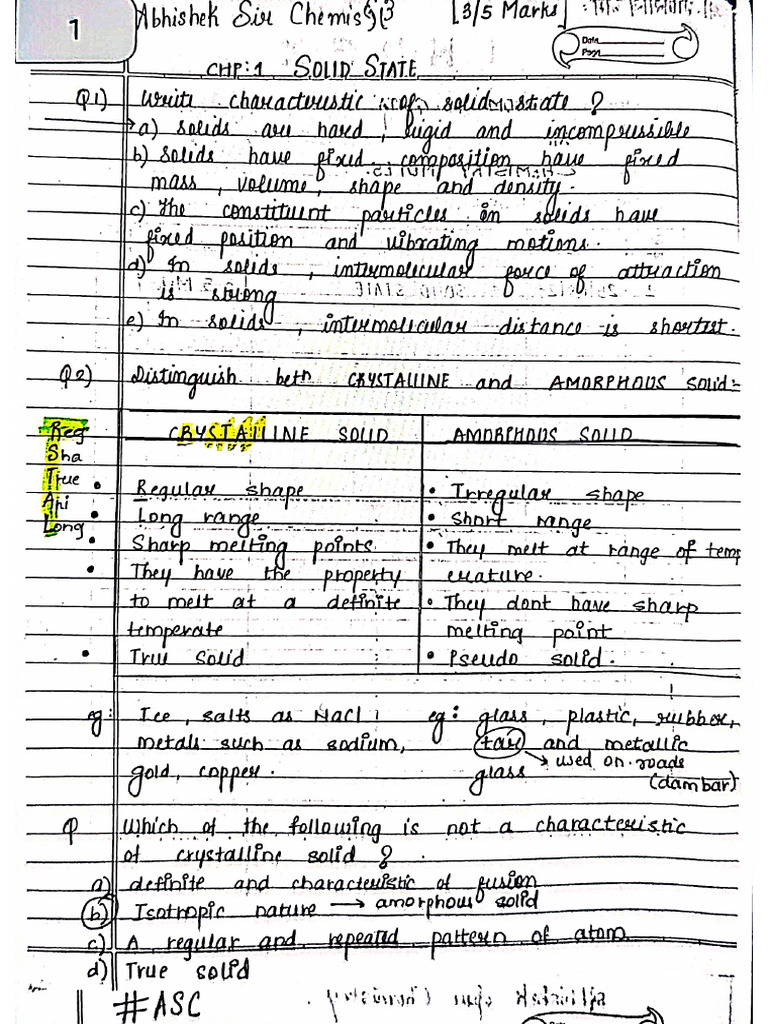 1
Abhishek Sir Chemistry
[3/5 Marks]
Date
Page
CHP:1 SOLID STATE
Q1) Write characteristic of solid state ?
→ a) solids are hard, rigid and incompressible
b) solids have fixed composition have fixed
mass, volume, shape and density.
c) The constituent particles in solids have
fixed position and vibrating motions.
d) In solids, intermolecular force of attraction
is strong
e) In solids, intermolecular distance is shortest.
Q2) Distinguish betn CRYSTALLINE and AMORPHOUS solid:-
Reg
Sha
True
Ani
Long
CRYSTALLINE SOLID
• Regular shape
• Long range
• Sharp melting points.
• They have the property
to melt at a definite
temperate
• True solid
AMORPHOUS SOLID
• Irregular shape
• Short range
• They melt at range of temp
erature.
• They dont have sharp
melting point
• Pseudo solid.
eg: Ice, salts as NaCl
metals such as sodium,
gold, copper.
eg: glass, plastic, rubber,
tar and metallic
glass
→ used on roads
(dambar)
Q Which of the following is not a characteristic
of crystalline solid ?
a) definite and characteristic of fusion
b) Isotropic nature → amorphous solid
c) A regular and repeated pattern of atom
d) True solid
#ASC